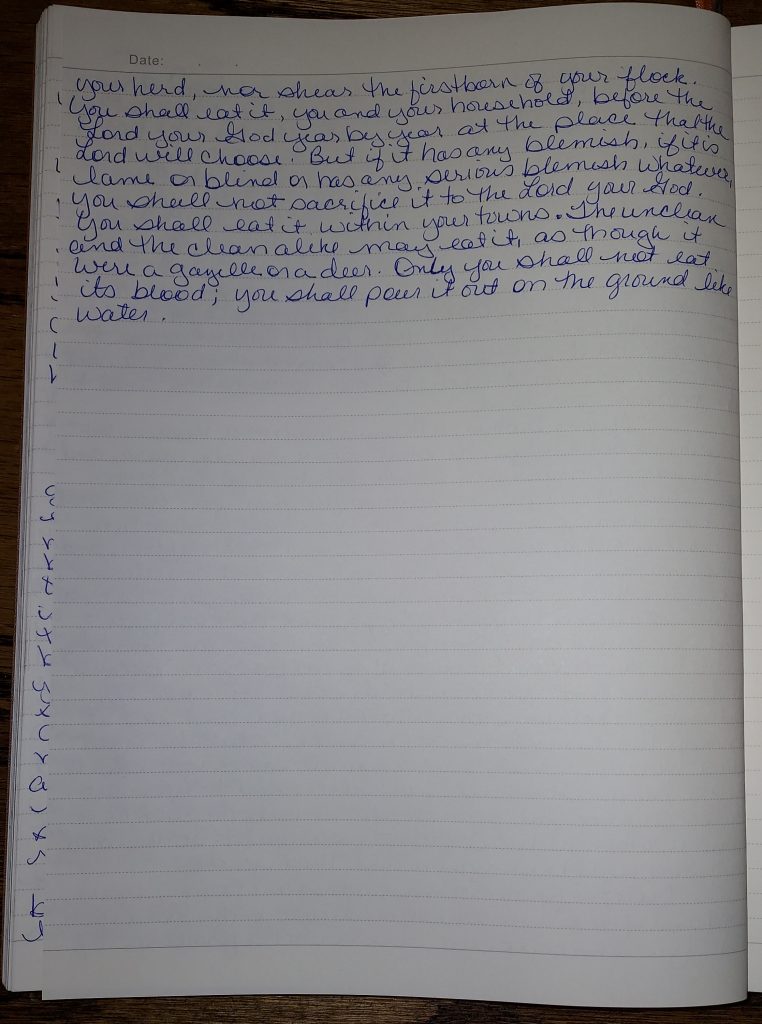 Date:
your herd, nor shear the firstborn of your flock.
You shall eat it, you and your household, before the
Lord your God year by year at the place that the
Lord will choose. But if it has any blemish, if it is
lame or blind or has any serious blemish whatever,
you shall not sacrifice it to the Lord your God.
You shall eat it within your towns. The unclean
and the clean alike may eat it, as though it
were a gazelle or a deer. Only you shall not eat
its blood; you shall pour it out on the ground like
water.